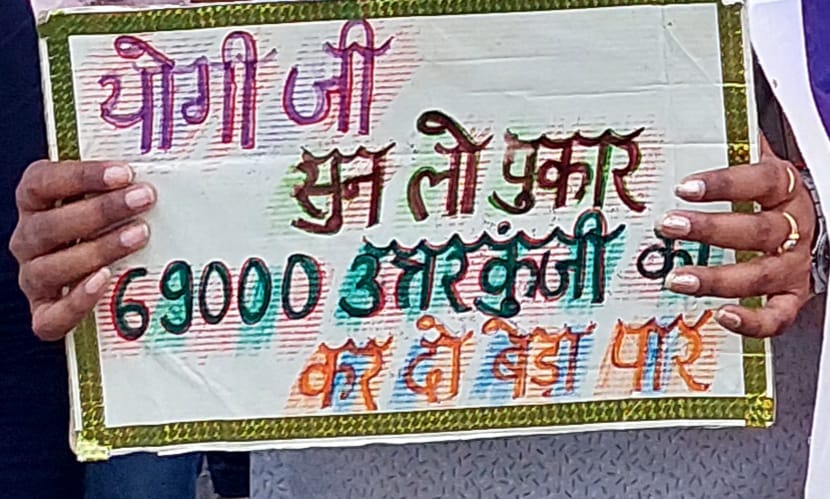 योगी जी
सुन लो पुकार
69000 उत्तरकुंजी का
कर दो बेड़ा पार